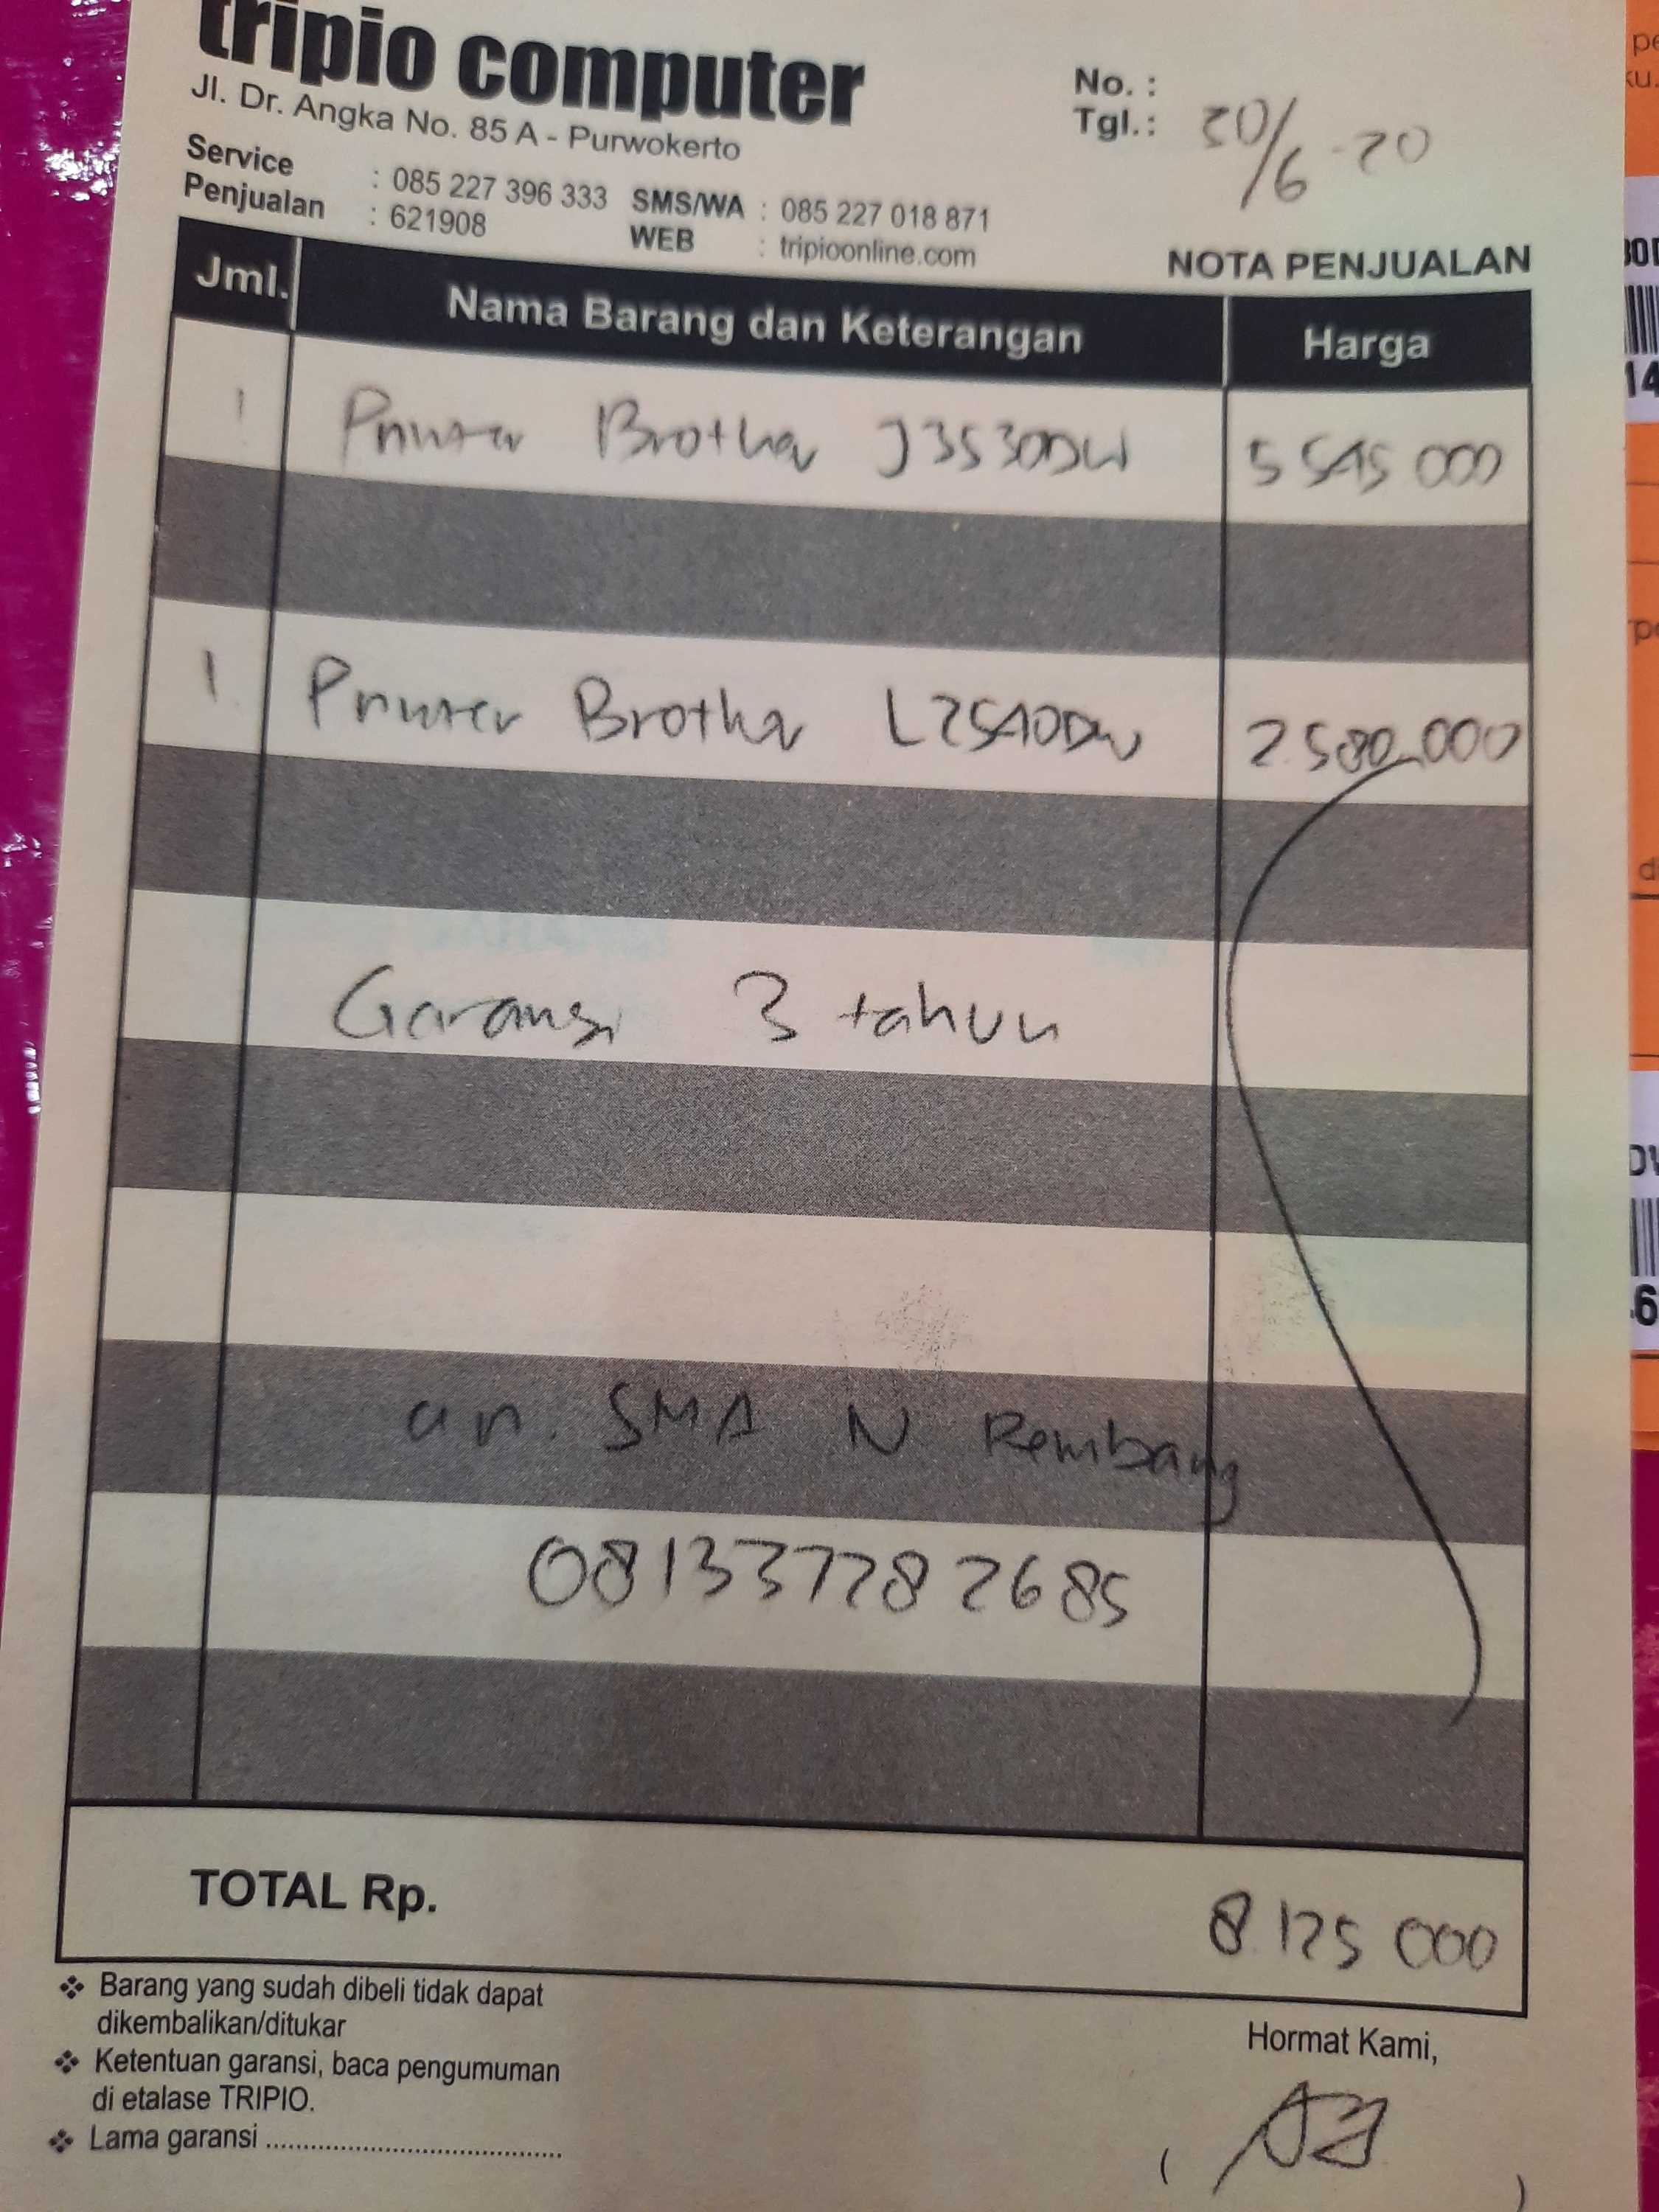 tripio computer
Jl. Dr. Angka No. 85 A - Purwokerto
Service : 085 227 396 333 SMS/WA : 085 227 018 871
Penjualan : 621908 WEB : tripioonline.com
No. :
Tgl. : 20/6-20
NOTA PENJUALAN
Jml. Nama Barang dan Keterangan Harga
1 Printer Brother J3530DW 5 545 000
1 Printer Brother L2540DW 2.580.000
Garansi 3 tahun
an. SMA N Rembang
081337782685
TOTAL Rp. 8.125 000
❖ Barang yang sudah dibeli tidak dapat
dikembalikan/ditukar
❖ Ketentuan garansi, baca pengumuman
di etalase TRIPIO.
❖ Lama garansi ..........................................
Hormat Kami,